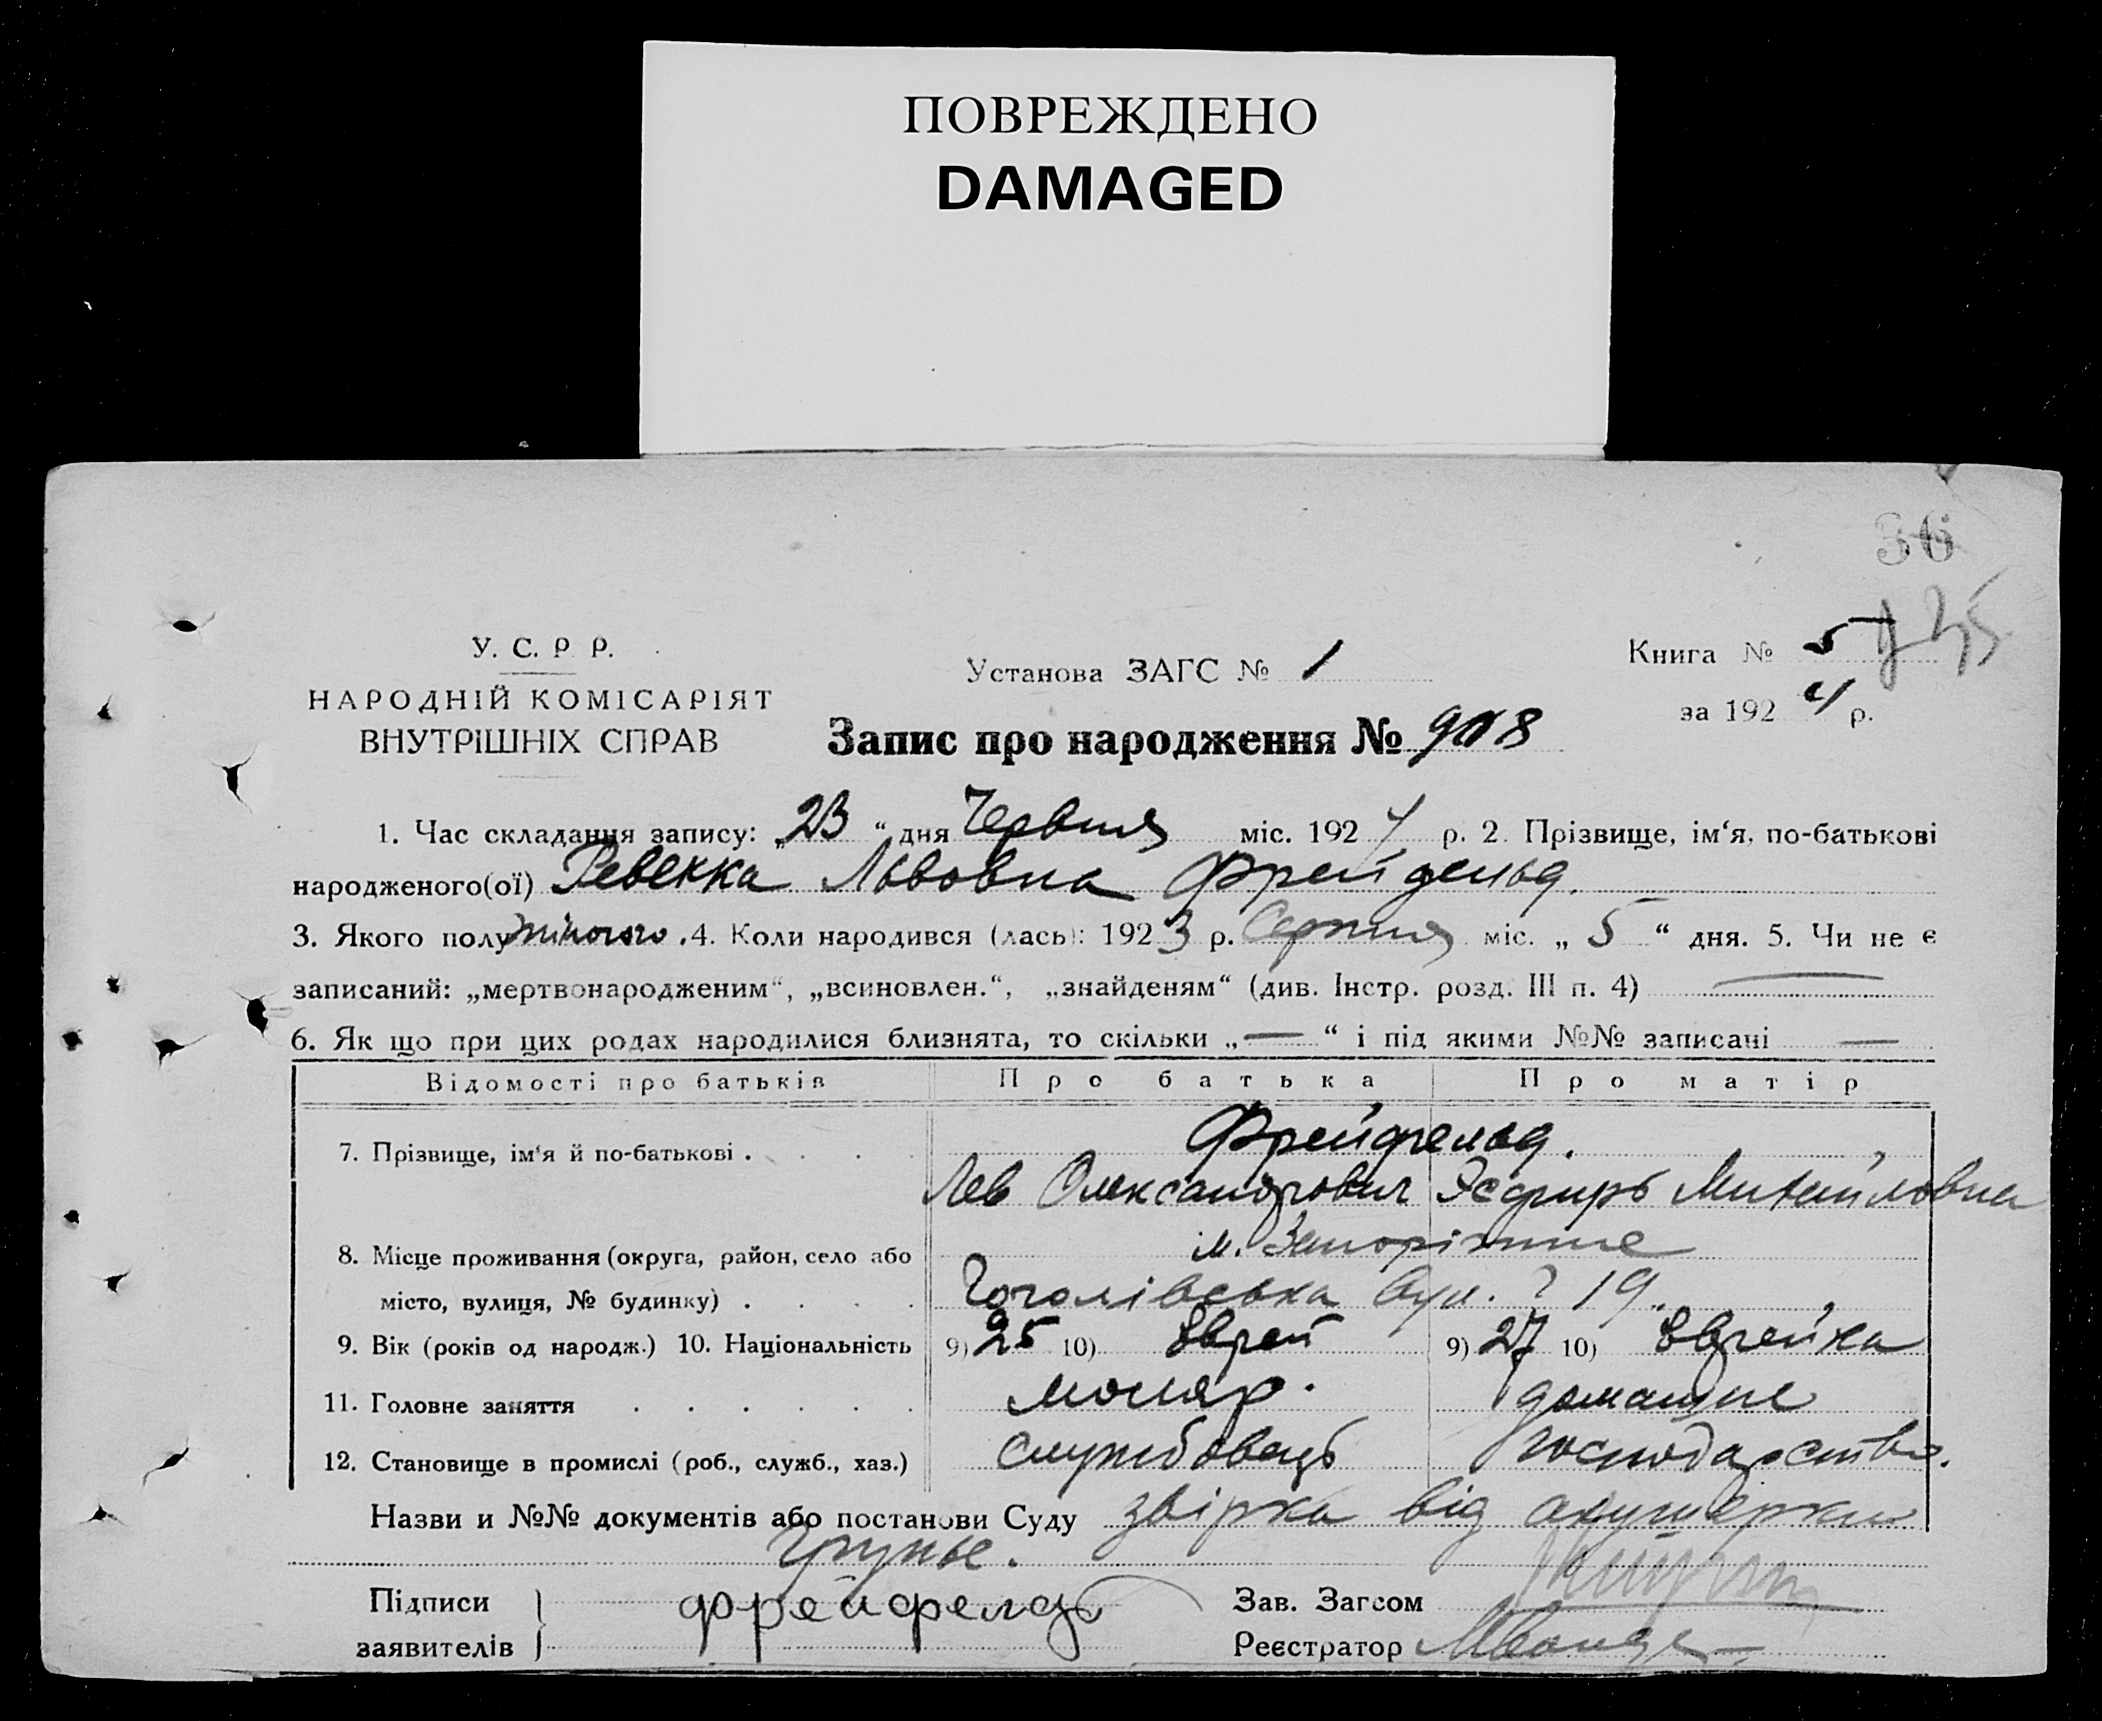 ПОВРЕЖДЕНО
DAMAGED
36
У. С. Р. Р.
НАРОДНІЙ КОМІСАРІЯТ
ВНУТРІШНІХ СПРАВ
Установа ЗАГС № 1
Книга № 5
за 1924 р.
Запис про народження № 908
1. Час складання запису: „23“ дня Червня міс. 1924 р. 2. Прізвище, ім‘я, по-батькові
народженого(ої) Ревекка Львовна Фрейфельд.
3. Якого полу жіночого. 4. Коли народився (лась): 1923 р. Серпня міс. „5“ дня. 5. Чи не є
записаний: „мертвонародженим“, „всиновлен.“, „знайденям“ (див. Інстр. розд. III п. 4) —
6. Як що при цих родах народилися близнята, то скільки „—“ і під якими №№ записані —
Відомості про батьків Про батька Про матір
7. Прізвище, ім‘я й по-батькові . . . . Фрейфельд.
Лев Олександрович Эсфирь Михайловна
8. Місце проживання (округа, район, село або м. Запоріжжє
місто, вулиця, № будинку) . . . . Гоголівська вул. 19.
9. Вік (років од народж.) 10. Національність 9) 25 10) Єврей 9) 27 10) Єврейка
11. Головне заняття . . . . . . моляр. домашнє
12. Становище в промислі (роб., служб., хаз.) службовець господарство.
Назви и №№ документів або постанови Суду звірка від акушерки
Підписи Фрейфелд Зав. Загсом
заявителів Реєстратор